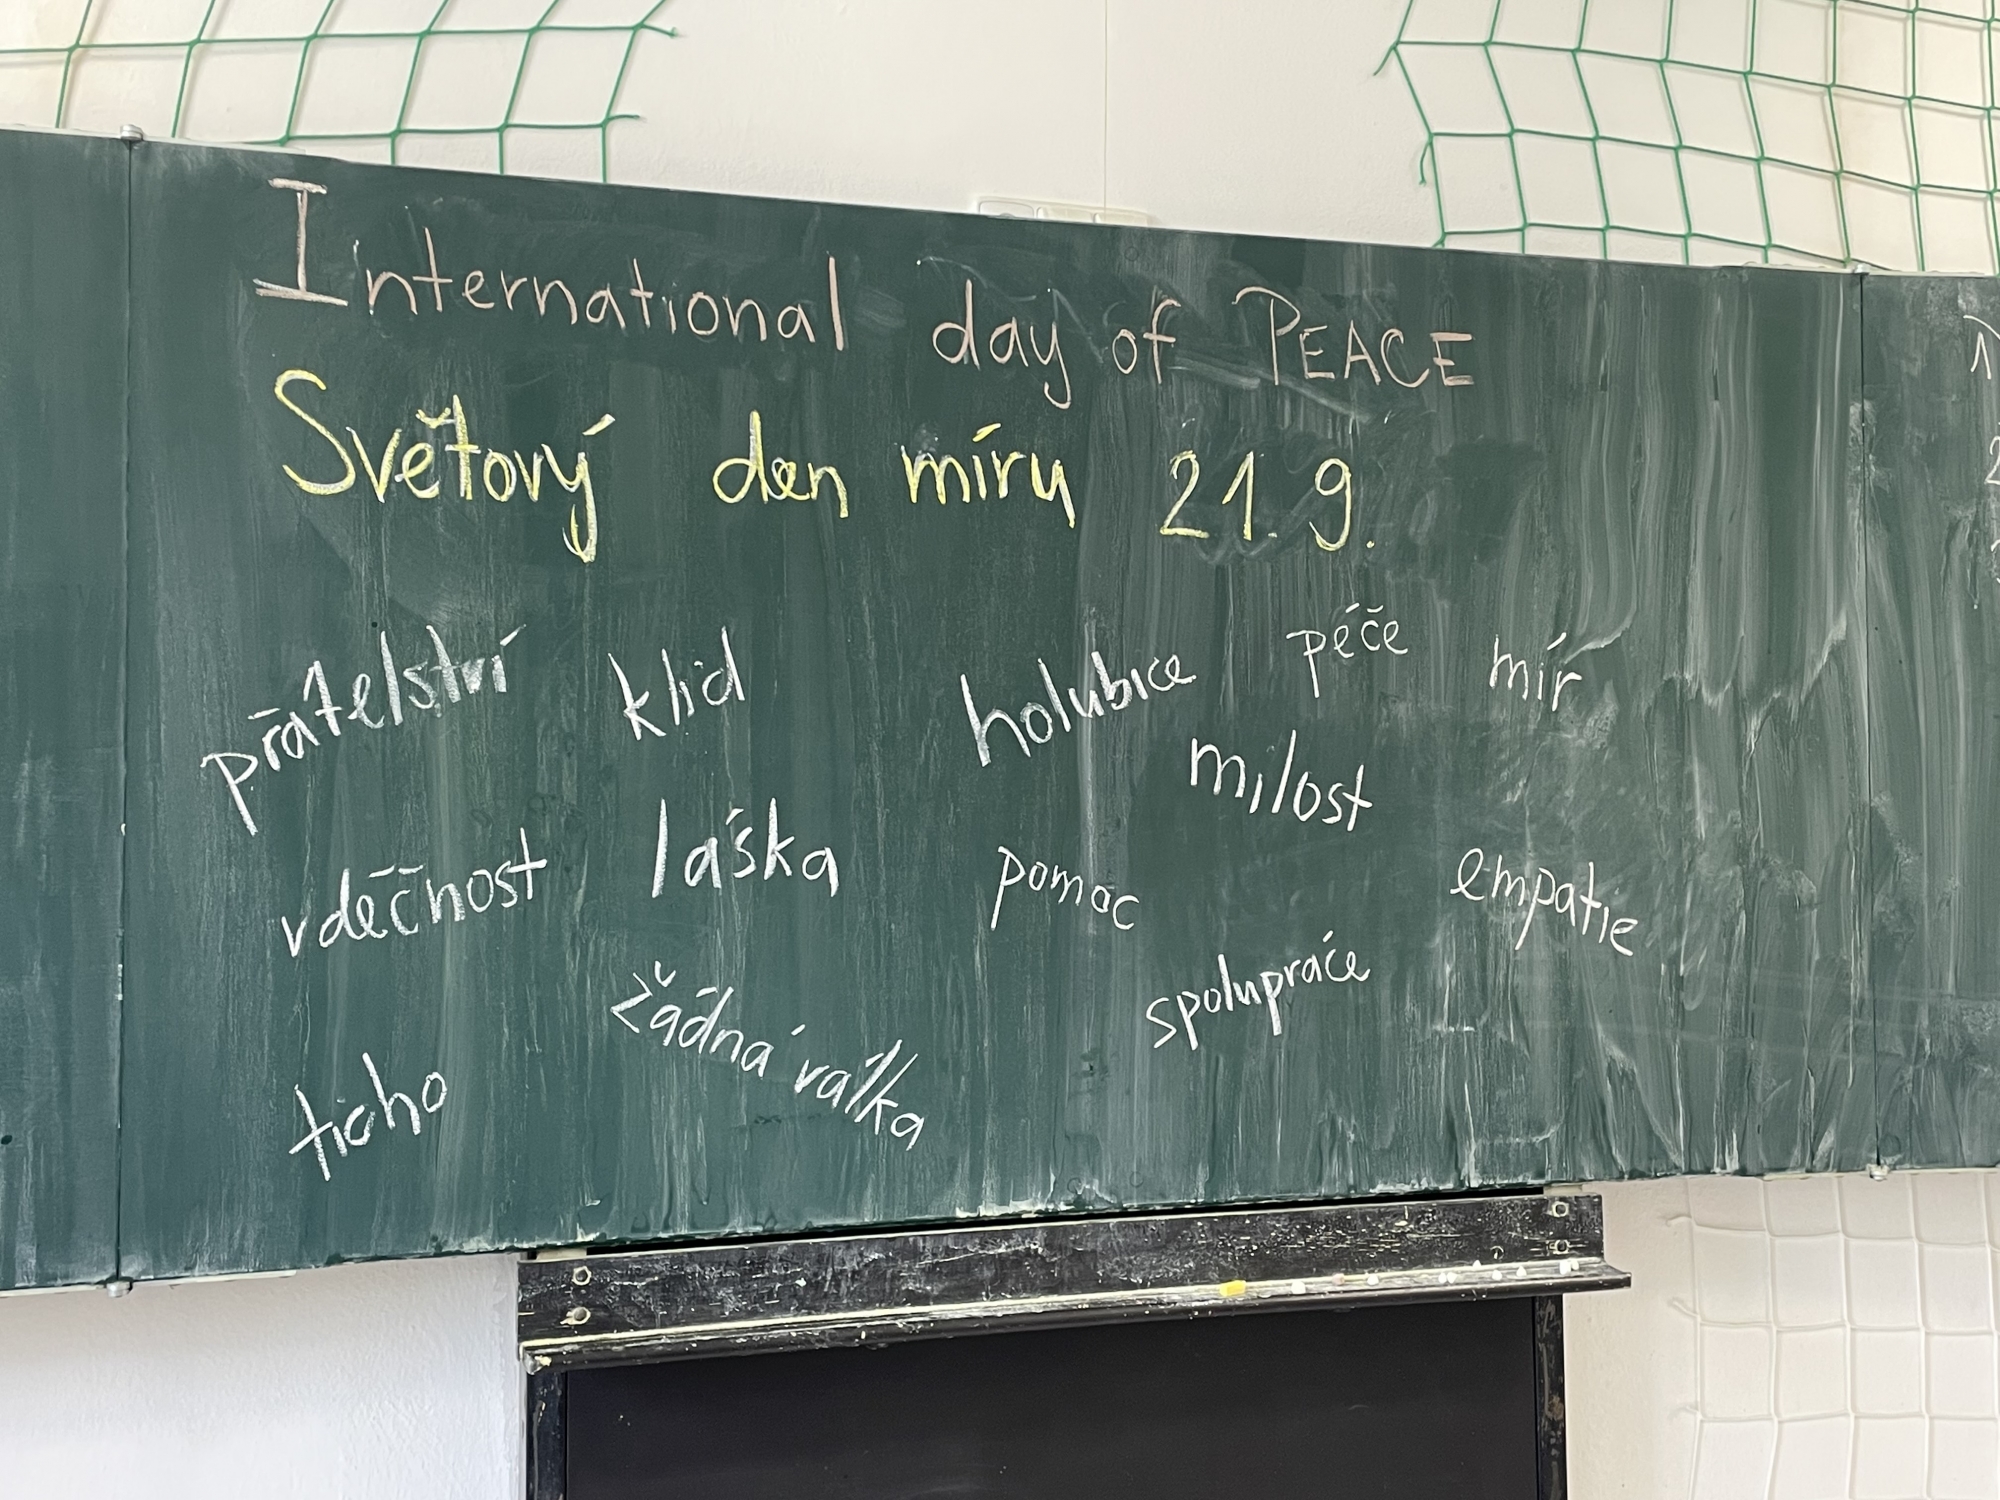 International day of PEACE
Světový den míru 21. 9.
přátelství klid holubice péče mír
milost
vděčnost láska pomoc empatie
žádná válka spolupráce
ticho